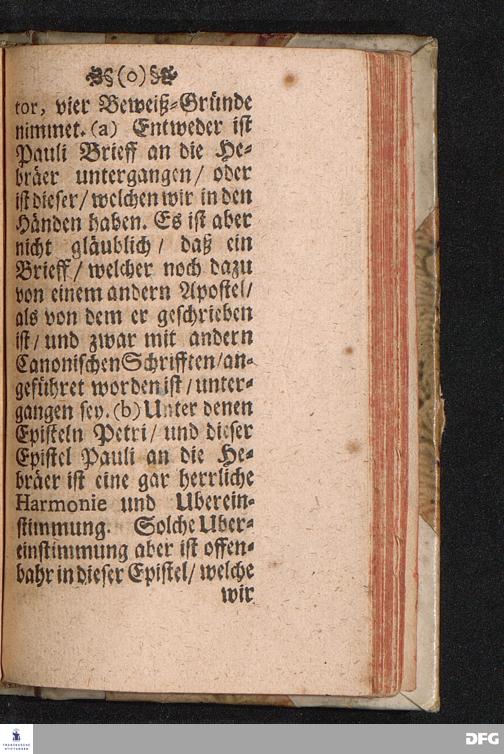 §(o)§
tor, vier Beweiß-Gründe
nimmet. (a) Entweder ist
Pauli Brieff an die He-
bräer untergangen/ oder
ist dieser/ welchen wir in den
Händen haben. Es ist aber
nicht gläublich/ daß ein
Brieff/ welcher noch dazu
von einem andern Apostel/
als von dem er geschrieben
ist/ und zwar mit andern
Canonischen Schrifften/ an-
geführet worden ist/ unter-
gangen sey. (b) Unter denen
Episteln Petri/ und dieser
Epistel Pauli an die He-
bräer ist eine gar herrliche
Harmonie und Uberein-
stimmung. Solche Uber-
einstimmung aber ist offen-
bahr in dieser Epistel/ welche
wir
FRANCKESCHE STIFTUNGEN
DFG